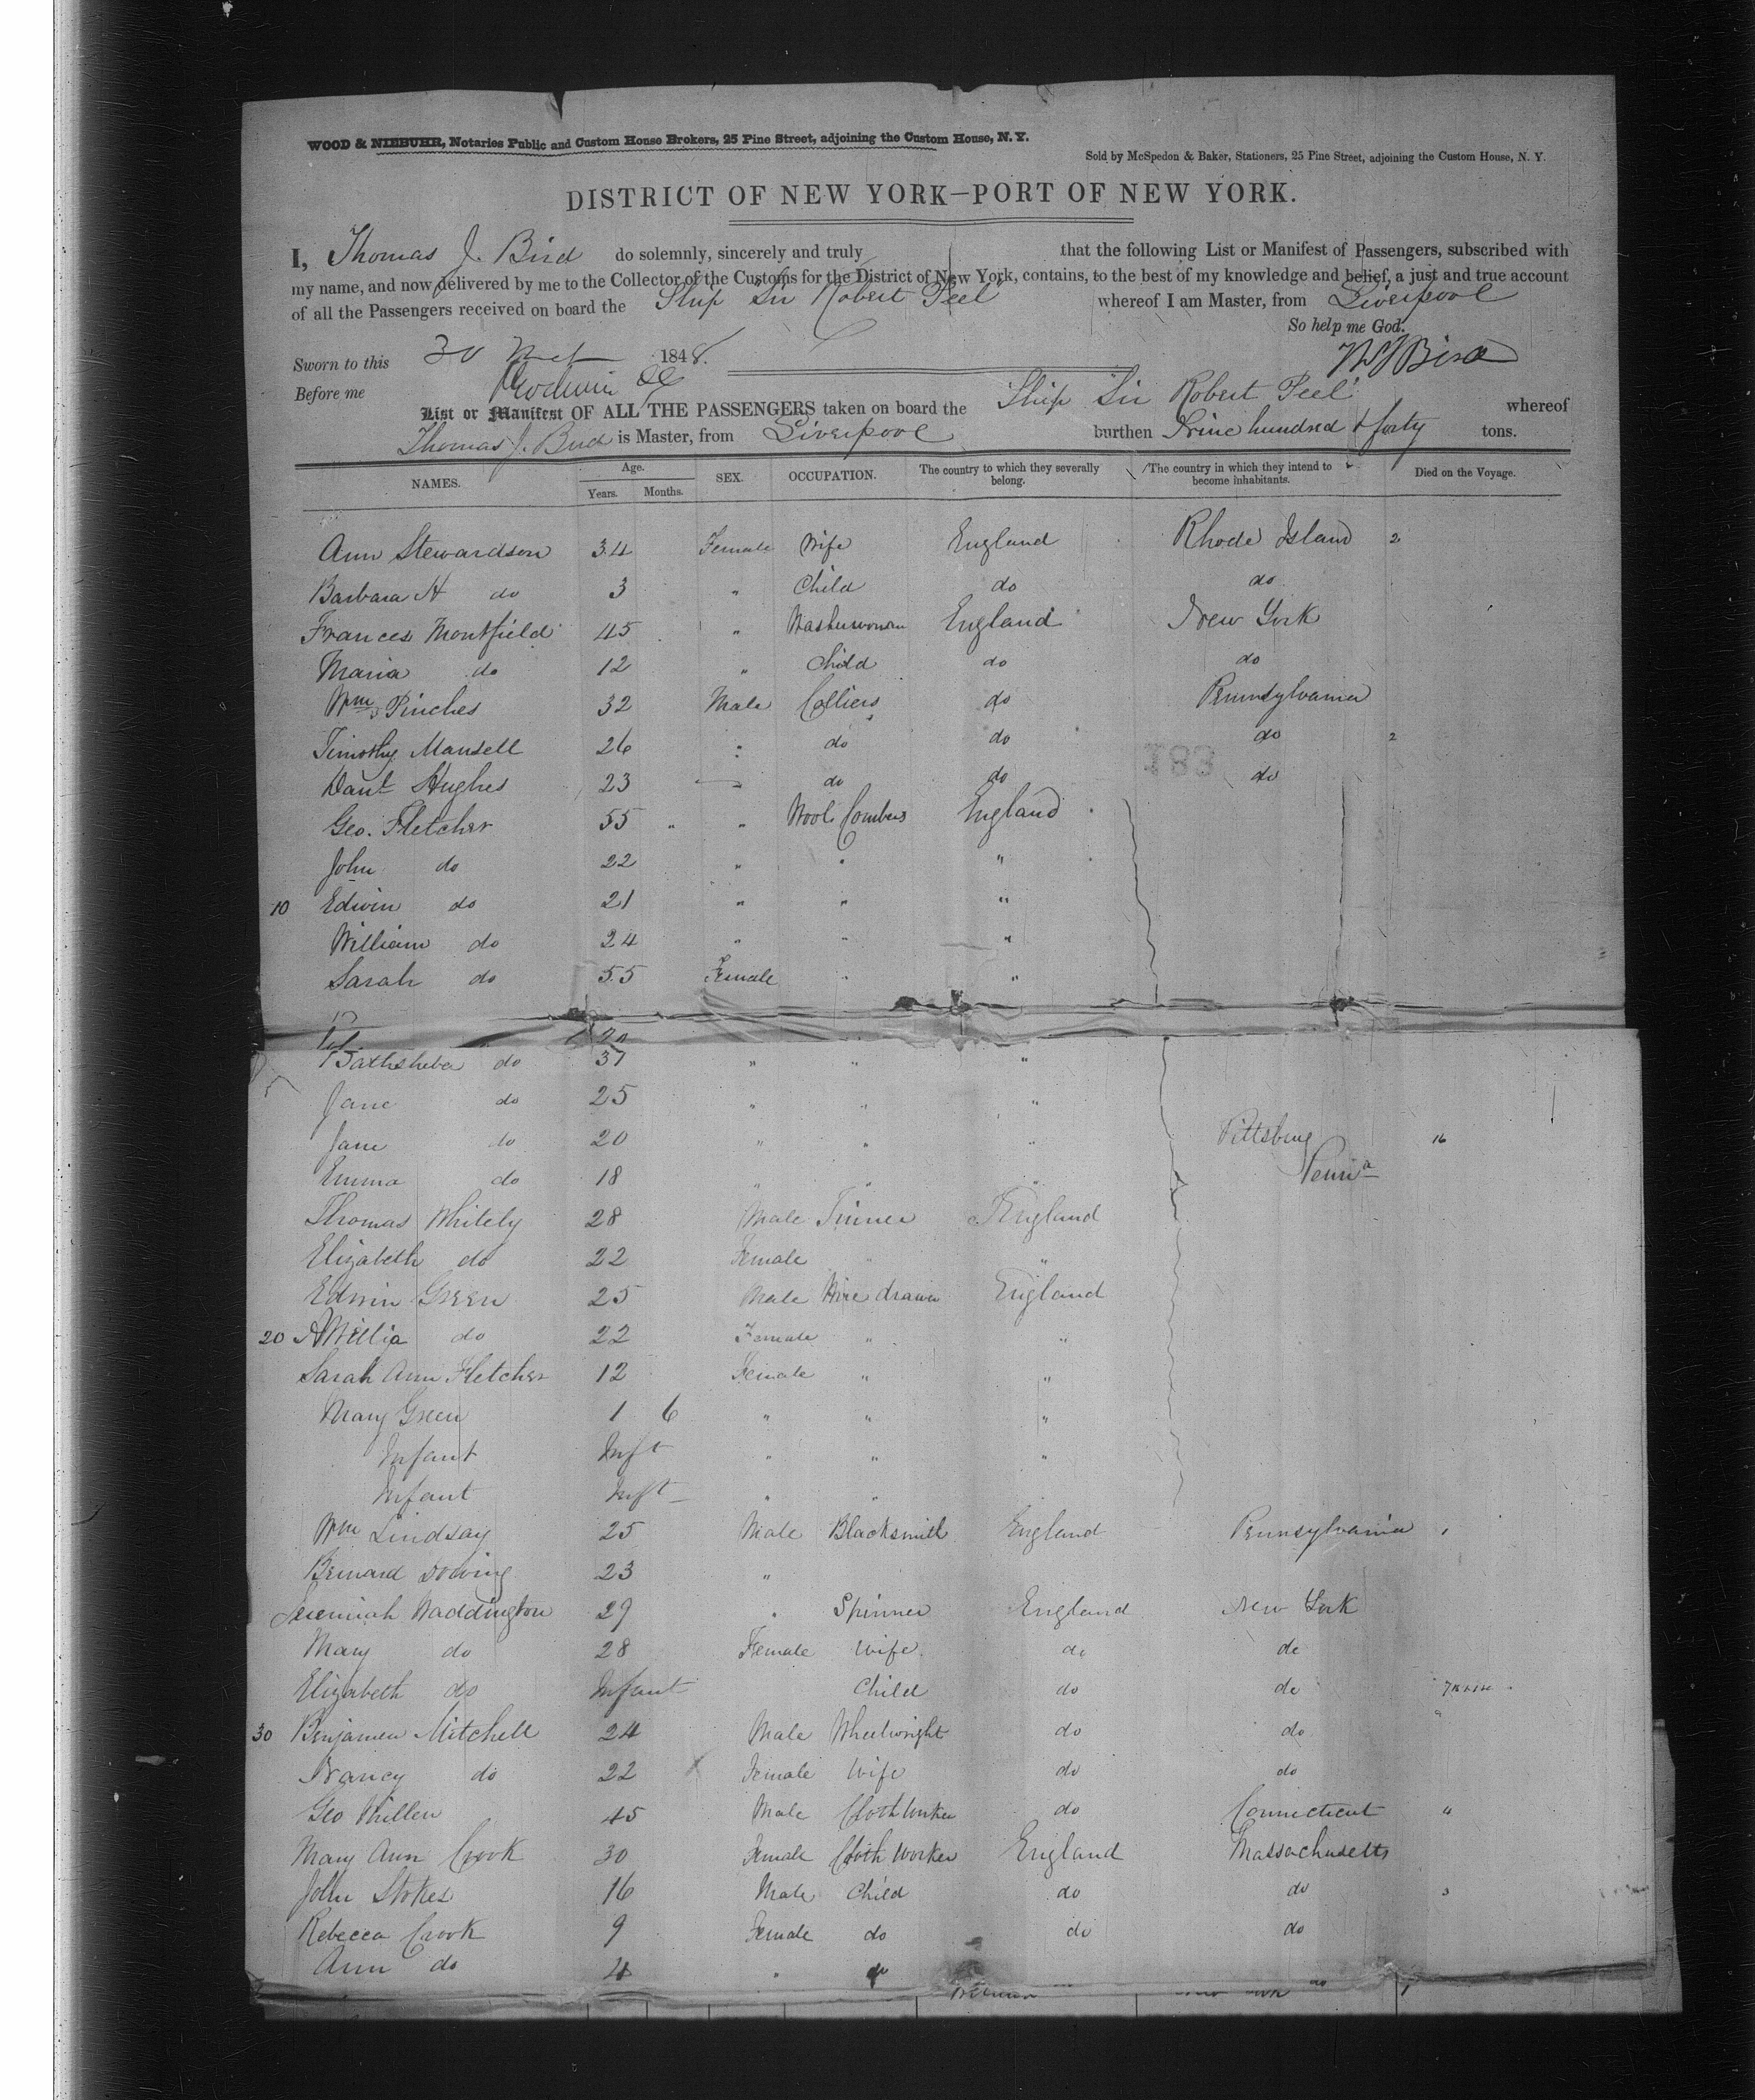 WOOD & NIEBUHR, Notaries Public and Custom House Brokers, 25 Pine Street, adjoining the Custom House, N. Y.
Sold by McSpedon & Baker, Stationers, 25 Pine Street, adjoining the Custom House, N. Y.
DISTRICT OF NEW YORK—PORT OF NEW YORK.
I, Thomas J. Bird do solemnly, sincerely and truly that the following List or Manifest of Passengers, subscribed with
my name, and now delivered by me to the Collector of the Customs for the District of New York, contains, to the best of my knowledge and belief, a just and true account
of all the Passengers received on board the Ship Sir Robert Peel whereof I am Master, from Liverpool
So help me God.
Sworn to this 30 1848. T J Bird
Before me
List or Manifest OF ALL THE PASSENGERS taken on board the Ship Sir Robert Peel whereof
Thomas J. Bird is Master, from Liverpool burthen Nine hundred & forty tons.
NAMES. Age. Years. Months. SEX. OCCUPATION. The country to which they severally belong. The country in which they intend to become inhabitants. Died on the Voyage.
Ann Stewardson 34 Female Wife England Rhode Island 2
Barbara H do 3 " Child do do
Frances Montfield 45 " Washerwoman England New York
Maria do 12 " Child do do
Wm Pinches 32 Male Colliers do Pennsylvania
Timothy Mansell 26 " do do do 2
183
Danl Hughes 23 " do do do
Geo. Fletcher 55 " " Wool Combers England
John do 22 " " "
10 Edwin do 21 " " "
William do 24 " " "
Sarah do 55 Female " "
Bathsheba do 37 " " "
Jane do 25 " " "
Jane do 20 " " " Pittsburg 16
Emma do 18 " " " Penna
Thomas Whitely 28 Male Tinner England
Elizabeth do 22 Female " "
Edwin Green 25 Male Wire drawer England
20 Amillia do 22 Female " "
Sarah Ann Fletcher 12 Female " "
Mary Green 1 6 " " "
Infant Inft " " "
Infant Inft " "
Wm Lindsay 25 Male Blacksmith England Pennsylvania
Bernard Dowing 23 "
Jeremiah Waddington 29 " Spinner England New York
Mary do 28 Female Wife do do
Elizabeth do Infant Child do do
30 Benjamen Mitchell 24 Male Wheelwright do do
Nancy do 22 Female Wife do do
Geo Killen 45 Male Cloth Worker do Connecticut "
Mary Ann Crook 30 Female Cloth Worker England Massachusetts
John Stokes 16 Male Child do do 3
Rebecca Crook 9 Female do do do
Ann do 4 " do